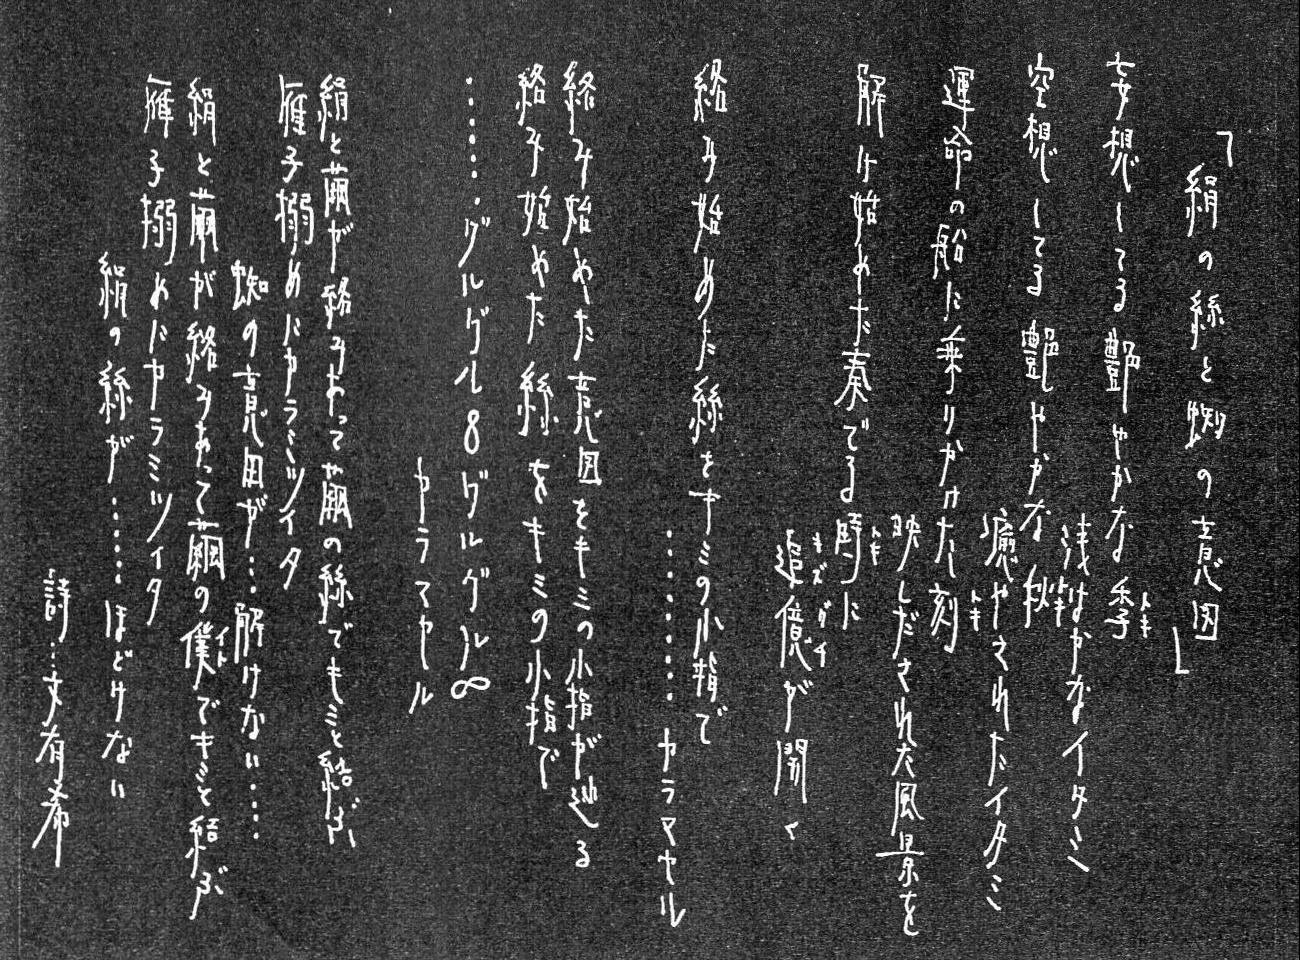 「絹の絲と蜘の意図」
妄想してる艶やかな季
トキ
浅はかなイタミ
空想してる艶やかな秋
トキ
癒やされたイタミ
運命の船に乗りかけた刻
トキ
映しだされた風景を
解け始めた奏でる時に
トキ
追億が開く
キズグチ
絡み始めた糸をキミの小指で
………カラマセル
絡み始めた意図をキミの小指が辿る
絡み始めた絲をキミの小指で
……グルグル8グルグル∞
カラマセル
絹と繭が絡みあって繭の絲でキミと結ぶ
雁字搦めにカラミツイタ
蜘の意図が…解けない……
絹と繭が絡みあって繭の僕でキミと結ぶ
イト
雁字搦めにカラミツイタ
絹の絲が……ほどけない
詩…夭有希